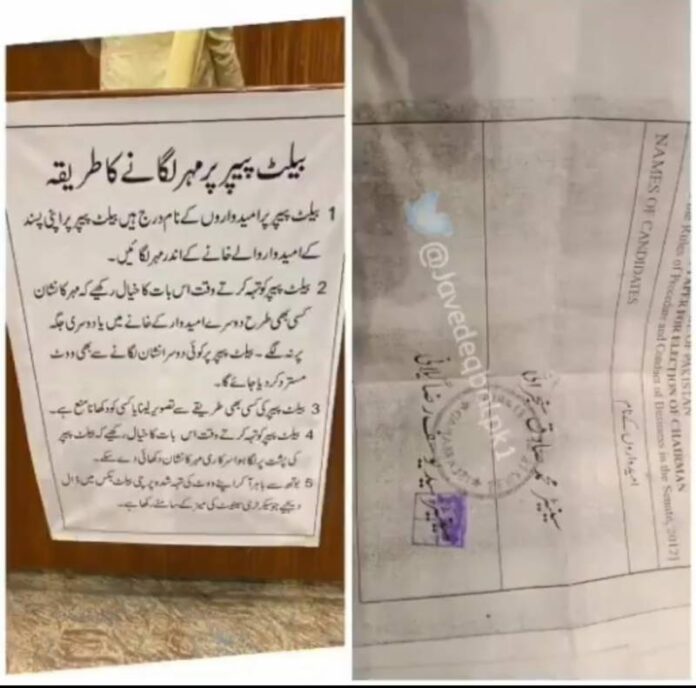 بیلٹ پیپر پر مہر لگانے کا طریقہ
1 بیلٹ پیپر پر امیدواروں کے نام درج ہیں بیلٹ پیپر پر اپنی پسند
کے امیدوار والے خانے کے اندر مہر لگائیں۔
2 بیلٹ پیپر کو تہہ کرتے وقت اس بات کا خیال رکھیے کہ مہر کا نشان
کسی بھی طرح دوسرے امیدوار کے خانے میں یا دوسری جگہ
پر نہ لگے۔ بیلٹ پیپر پر کوئی دوسرا نشان لگانے سے بھی ووٹ
مسترد کر دیا جائے گا۔
3 بیلٹ پیپر کی کسی بھی طریقے سے تصویر لینا یا کسی کو دکھانا منع ہے۔
4 بیلٹ پیپر کو تہہ کرتے وقت اس بات کا خیال رکھیے کہ بیلٹ پیپر
کی پشت پر لگا ہوا سرکاری مہر کا نشان دکھائی دے سکے۔
5 بوتھ سے باہر آ کر اپنے ووٹ کی تہہ شدہ پرچی بیلٹ بکس میں ڈال
دیجیے جو سیکرٹری سینیٹ کی میز کے سامنے رکھا ہے۔
PAPER FOR ELECTION OF CHAIRMAN
Rules of Procedure and Conduct of Business in the Senate, 2012]
NAMES OF CANDIDATES
امیدواروں کے نام
سینیٹر محمد صادق سنجرانی
سید یوسف رضا گیلانی
@Javedeqbalpk1